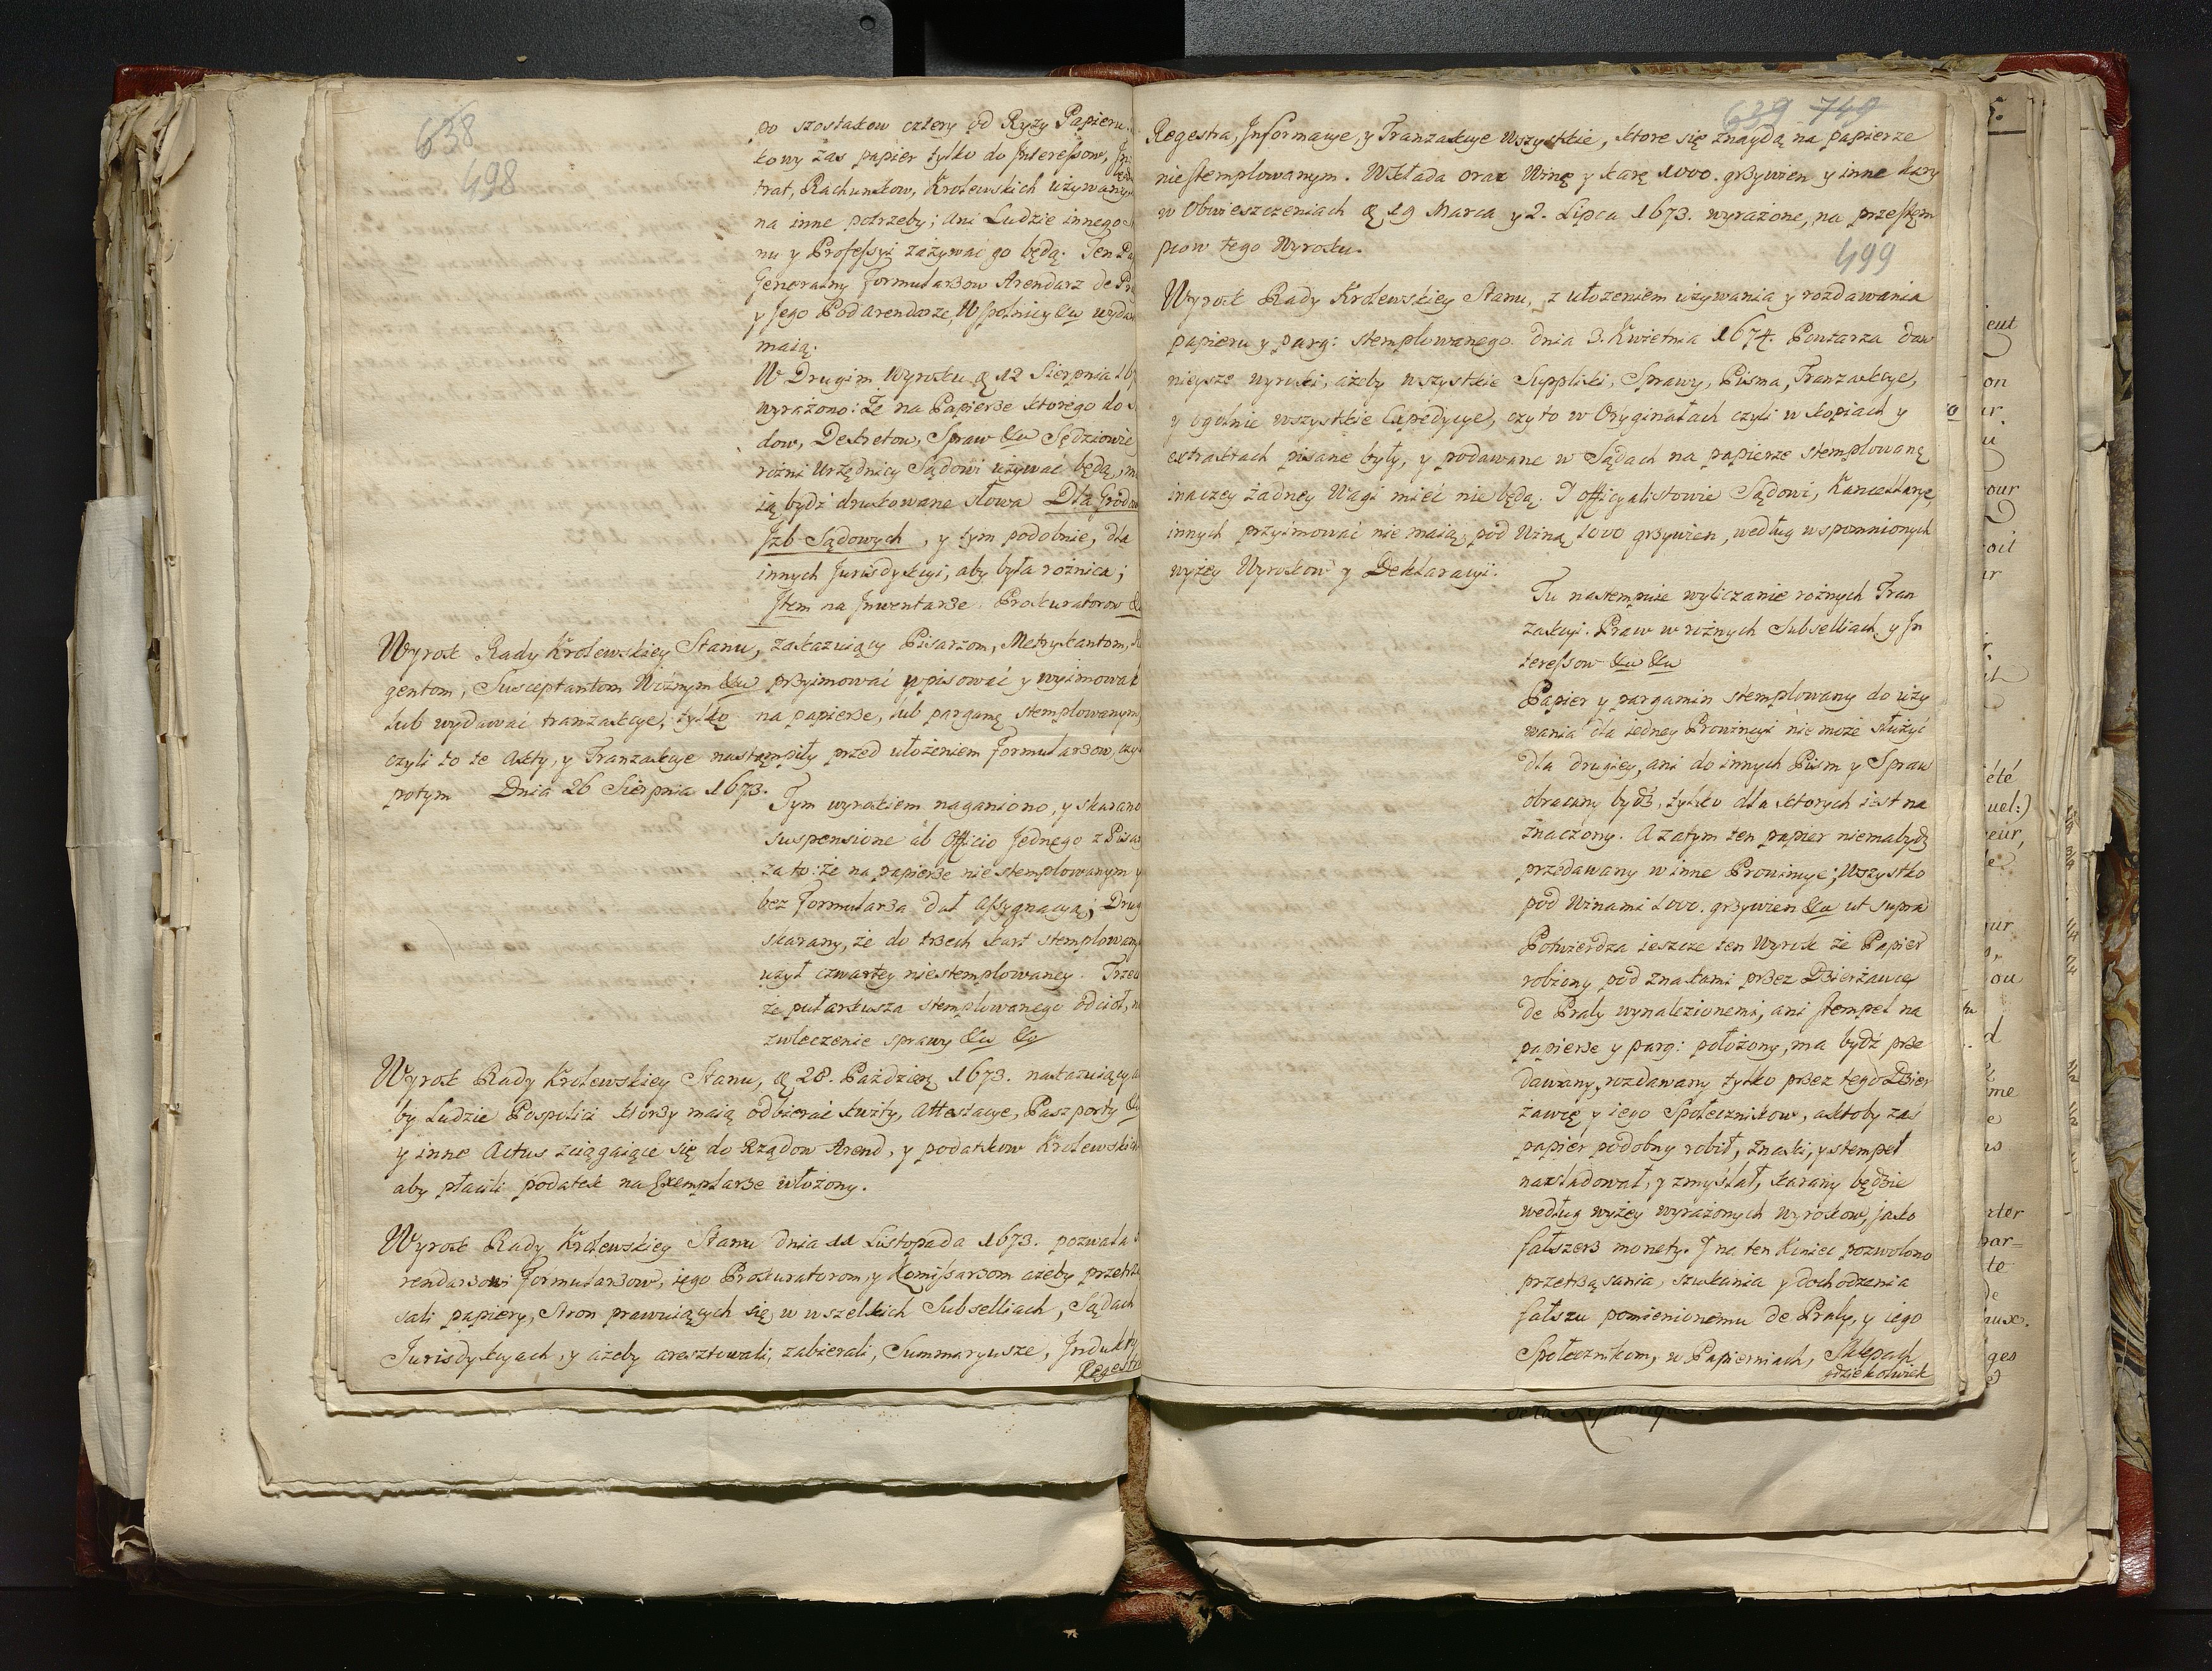 638
498
po szostakow cztery od Ryzy Papieru.
kowy zas papier tylko do Interessow,
trat, Rachunkow, Krolewskich używany
na inne potrzeby; ani Ludzie innego
nu y Professyi zażywać go będą. Ten
Generalny Formularzow Arendarz de
y Jego Pod Arendarze, Wspolnicy &a
maią.
W Drugim Wyroku 12 Sierpnia
wyrażono: Że na Papierze ktorego do
dow, Dekretow, Spraw &a Sędziowie
rożni Urzędnicy Sądowi używać będą,
ią bydź drukowane słowa Dla
Jzb Sądowych, y tym podobnie, dla
innych Jurisdykcyi, aby była rożnica;
Item na Inwentarze Prokuratorow
Wyrok Rady Krolewskiey Stanu, zakazuiący Pisarzom, Metrykantom,
gentom, Susceptantom Woźnym &a przyimować wpisować y wyimować
lub wydawać tranzakcye, tylko na papierze, lub pargamę stemplowanym
czyli to te Akty, y Tranzakcye nastąpiły przed ułożeniem Formularzow,
potym Dnia 26 Sierpnia 1673.
Tym wyrokiem naganiono, y skarano
suspensione ab Officio Jednego z
za to: że na papierze nie stemplowanym y
bez Formularza dał Assygnacyą;
skarany, że do trzech kart stemplowany
użył czwartey niestemplowaney.
że puł arkusza stemplowanego odciął,
zwleczenie sprawy &a &a
Wyrok Rady Krolewskiey Stanu, 28. Paździer 1673. nakazuiący
by Ludzie Pospolici ktorzy maią odbierać kwity, Attestacye, Paszporty
y inne Actus ściągaiące się do Rządow Arend, y podatkow
aby płacili podatek na Exemplarze ułożony.
Wyrok Rady Krolewskiey Stanu dnia 11 Listopada 1673. pozwala
rendarzowi Formularzow, iego Prokuratorom, y Komissarzom ażeby
sali papiery, Stron prawuiących się, w wszelkich Subselliach, Sądach
Jurisdykcyach, y ażeby aresztowali, zabierali, Summaryusze,
639 749
Regestra, Informacye, y Tranzakcye Wszystkie, ktore się znaydą na papierze
niestemplowanym. Wkłada oraz Winę y karę 1000. grzywien y inne kary
w Obwieszczeniach 19 Marca y 2. Lipca 1673. wyrażone, na przestęm
pcow tego Wyroku.
499
Wyrok Rady Krolewskiey Stanu, z ułożeniem używania y rozdawania
papieru y parg: stemplowanego dnia 3. Kwietnia 1674. Powtarza daw
nieysze wyroki, ażeby wszystkie Suppliki, Sprawy, Pisma, Tranzakcye,
y ogulnie wszystkie Expedycye, czy to w Oryginałach czyli w kopiach y
extraktach pisane były, y podawane w Sądach na papierze stemplowanę
inaczey żadney Wagi mieć nie będą. I officyalistowie Sądowi, Kancellarye,
innych przyimować nie maią, pod Winą 1000 grzywien, według wspomnionych
wyżey Wyrokow y Deklaracyi.
Tu nastempuie wyliczanie rożnych Tran
zakcyi. Praw w rożnych Subselliach y In
teressow &a &a
Papier y pargamin stemplowany do uży
wania dla iedney Prowincyi nie może służyć
dla drugiey, ani do innych Pism y Spraw
obracany bydź, tylko dla ktorych iest na
znaczony. A zatym ten papier niema bydź
przedawany w inne Prowincye; Wszystko
pod Winami 1000. grzywien &a ut supra
Potwierdza ieszcze ten Wyrok że Papier
robiony pod znakami przez Dzierżawcę
de Praly wynalezionemi, ani stempel na
papierze y parg: położony, ma bydź prze
dawany, rozdawany tylko przez tego Dzier
żawcę y iego Społecznikow, a ktoby zaś
papier podobny robił, znaki, y stempel
naśladował, y zmyślał, karany będzie
według wyżey wyrażonych wyrokow, jako
fałszerz monety. I na ten Koniec pozwolono
przetrząsania, szukania y dochodzenia
fałszu pomienionemu de Praly, y iego
Społecznikom, w Papierniach, Sklepach
gdziekolwiek